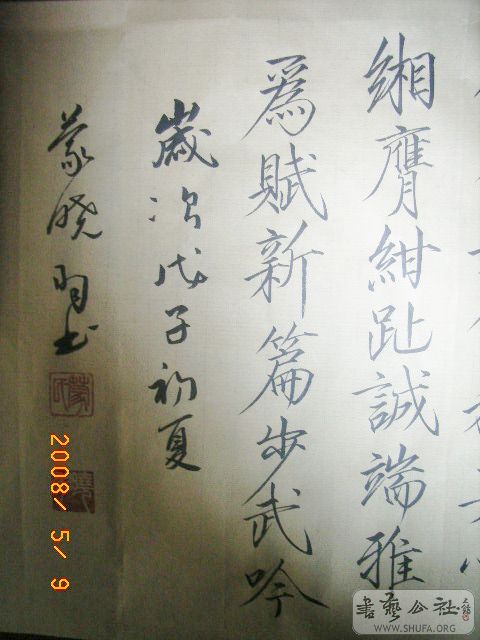 緗膺紺趾誠端雅
爲賦新篇步武吟
歲次戊子初夏
蒙晓书
2008/ 5/ 9
書藝公社
WWW.SHUFA.ORG